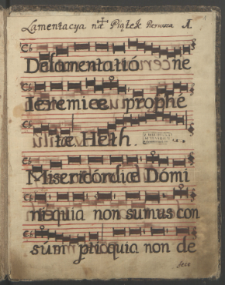 Lamentacya na Piątek Pierwsza A
Delamentatio ne
Ieremiæ prophe
tæ Heth
Misericordiæ Domi
ni quia non sumus con
sumpti quia non de